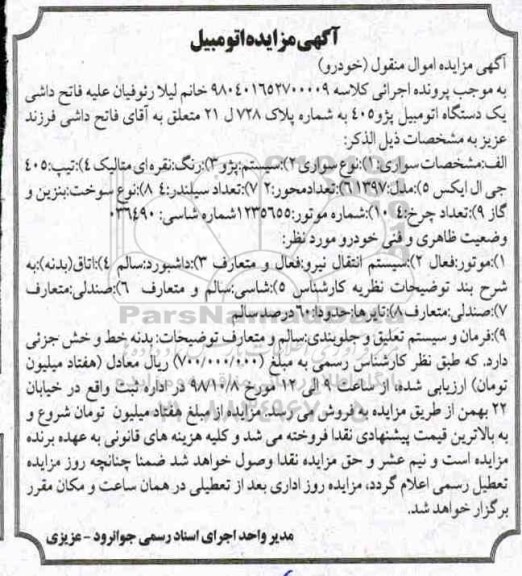 آگهی مزایده اتومبیل
آگهی مزایده اموال منقول (خودرو)
به موجب پرونده اجرائی کلاسه ۹۸۰۴۰۱۶۵۳۷۰۰۰۰۹ خانم لیلا رئوفیان علیه فاتح داشی
یک دستگاه اتومبیل پژو۴۰۵ به شماره پلاک ۷۲۸ ل ۲۱ متعلق به آقای فاتح داشی فرزند
عزیز به مشخصات ذیل الذکر:
الف:مشخصات سواری:۱):نوع سواری ۲):سیستم:پژو ۳):رنگ:نقره ای متالیک ۴):تیپ:۴۰۵
جی ال ایکس ۵):مدل:۱۳۹۷ ۶):تعدادمحور:۲ ۷):تعداد سیلندر:۴ ۸):نوع سوخت:بنزین و
گاز ۹):تعداد چرخ:۴ ۱۰):شماره موتور:۱۲۳۵۶۵۵شماره شاسی: ۰۳۶۴۹۰
وضعیت ظاهری و فنی خودرو مورد نظر:
۱):موتور:فعال ۲):سیستم انتقال نیرو:فعال و متعارف ۳):داشبورد:سالم ۴):اتاق(بدنه):به
شرح بند توضیحات نظریه کارشناس ۵):شاسی:سالم و متعارف ۶):صندلی:متعارف
۷):صندلی:متعارف ۸):تایرها:حدودا:۶۰ درصد سالم
ParsNamadData
۹):فرمان و سیستم تعلیق و جلوبندی:سالم و متعارف توضیحات: بدنه خط و خش جزئی
دارد. که طبق نظر کارشناس رسمی به مبلغ (۷۰۰/۰۰۰/۰۰۰) ریال معادل (هفتاد میلیون
تومان) ارزیابی شده، از ساعت ۹ الی ۱۲ مورخ ۹۸/۱۰/۸ در اداره ثبت واقع در خیابان
۲۲ بهمن از طریق مزایده به فروش می رسد.مزایده از مبلغ هفتاد میلیون تومان شروع و
به بالاترین قیمت پیشنهادی نقدا فروخته می شد و کلیه هزینه های قانونی به عهده برنده
مزایده است و نیم عشر و حق مزایده نقدا وصول خواهد شد ضمنا چنانچه روز مزایده
تعطیل رسمی اعلام گردد، مزایده روز اداری بعد از تعطیلی در همان ساعت و مکان مقرر
برگزار خواهد شد.
مدیر واحد اجرای اسناد رسمی جوانرود - عزیزی